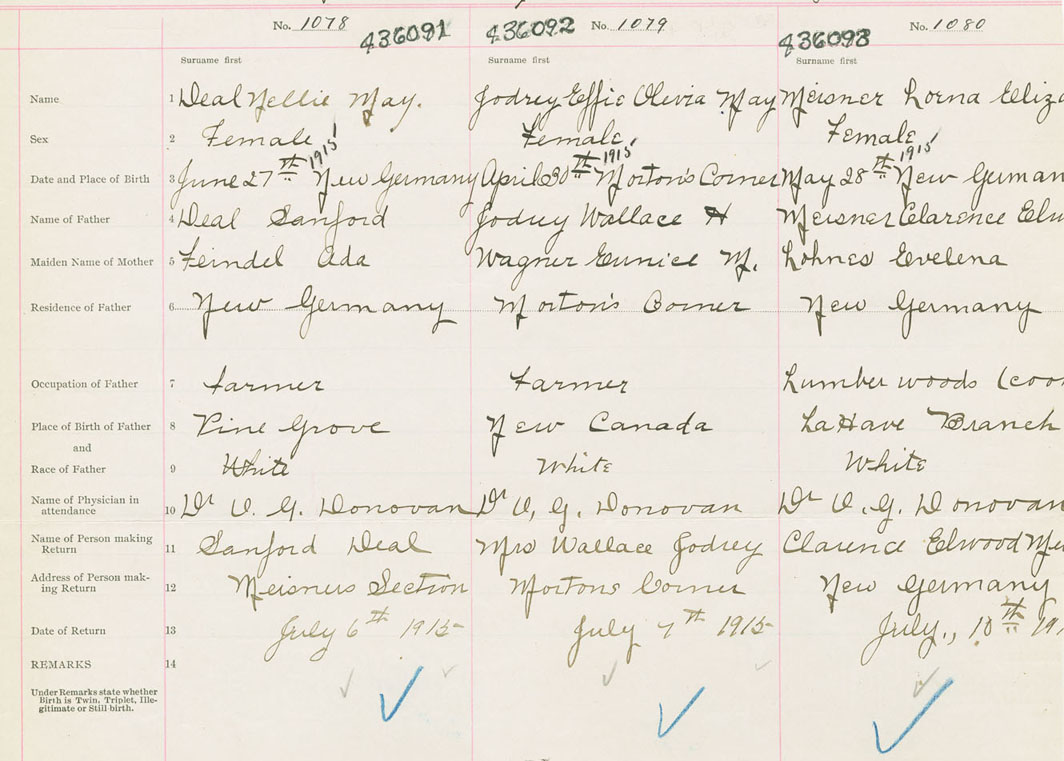 No. 1078 436091 436092 No. 1079 436093 No. 1080
Surname first Surname first Surname first
Name 1 Deal Nellie May. Godrey Effie Olevia May Meisner Lorna Eliza
Sex 2 Female Female Female
Date and Place of Birth 3 June 27th 1915 New Germany April 30th 1915 Morton's Corner May 28th 1915 New German
Name of Father 4 Deal Sanford Godrey Wallace H Meisner Clarence Elw
Maiden Name of Mother 5 Feindel Ada Wagner Eunice M. Lohnes Evelena
Residence of Father 6 New Germany Morton's Corner New Germany
Occupation of Father 7 Farmer Farmer Lumber woods (coo
Place of Birth of Father 8 Pine Grove New Canada LaHave Branch
and
Race of Father 9 White White White
Name of Physician in
attendance 10 Dr O. G. Donovan Dr O, G, Donovan Dr O. G. Donovan
Name of Person making
Return 11 Sanford Deal Mrs Wallace Godrey Clarence Elwood Me
Address of Person mak-
ing Return 12 Meisners Section Mortons Corner New Germany
Date of Return 13 July 6th 1915 July 7th 1915 July., 10th 19
REMARKS 14
Under Remarks state whether
Birth is Twin, Triplet, Ille-
gitimate or Still-birth.